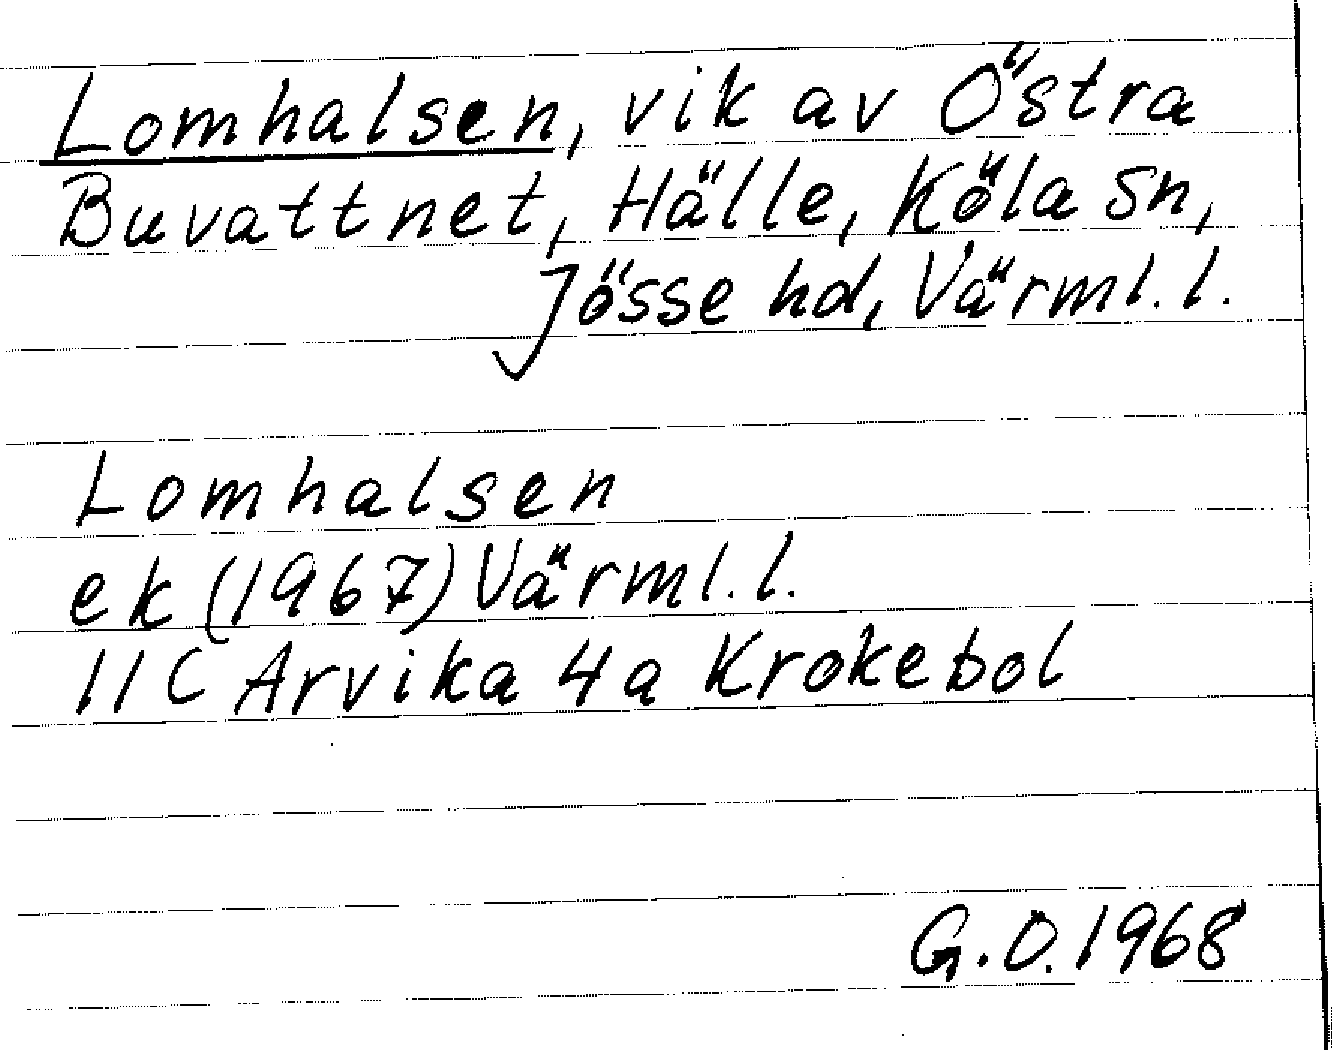 Lomhalsen, vik av Östra
Buvattnet, Hälle, Köla sn,
Jösse hd, Värml. l.
Lomhalsen
ek (1967) Värml. l.
11C Arvika 4a Krokebol
G.O. 1968